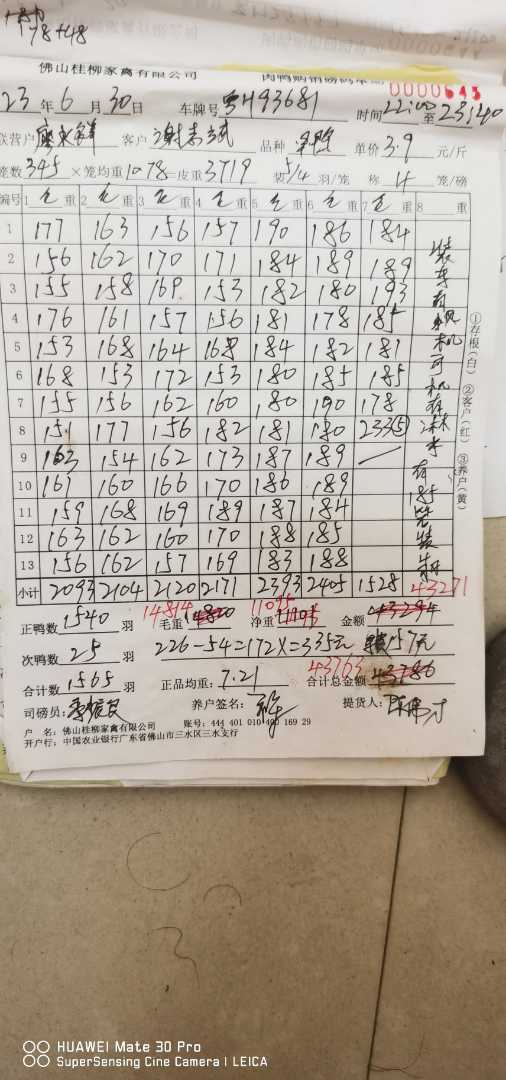 178+48
佛山桂柳家禽有限公司 0000643
23 年 6 月 30 日 车牌号 粤H93681 时间 22:00 至 23:40
联营户 客户 品种 单价 3.9 元/斤
笼数 345 × 笼均重 1078 = 皮重 3719 装 5/4 羽/笼 称 4 笼/磅
编号 1 毛 重 2 毛 重 3 毛 重 4 毛 重 5 毛 重 6 毛 重 7 毛 重 8 重
1 177 163 156 157 190 186 184
2 156 162 170 171 184 189 189
3 155 158 169 153 182 180 193
4 176 161 157 156 181 178 185
5 153 168 164 168 184 182 181
6 168 153 172 153 180 185 185
7 155 156 162 160 180 190 178
8 151 177 156 182 181 180 233⑤
9 163 154 162 173 187 189
10 161 160 166 170 186 189
11 159 168 169 189 187 184
12 163 162 160 170 188 185
13 156 162 157 169 183 188
小计 2093 2104 2120 2171 2393 2405 1528 43271
①存根(白) ②客户(红) ③养户(黄)
正鸭数 1540 羽 毛重 14814 净重 11095 金额
次鸭数 25 羽 226-54=172X=335元 157元
合计数 1565 羽 正品均重: 7.21 合计总金额 43763
司磅员: 养户签名: 提货人:
户 名: 佛山桂柳家禽有限公司 账号: 444 401 010 400 169 29
开户行: 中国农业银行广东省佛山市三水区三水支行
HUAWEI Mate 30 Pro
SuperSensing Cine Camera | LEICA